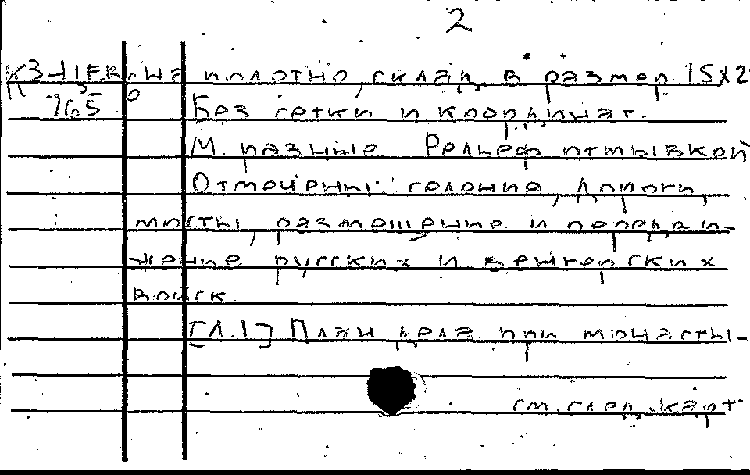 2
К3-1/5 на полотно, склад. в размер 15х2
7/65 Без сетки и координат.
М. разные Рельеф отмывкой
Отмечены: селение, дороги,
мосты, размещение и передви-
жение русских и венгерских
войск.
[Л.1] План дела при монасты-
см. след. карт.